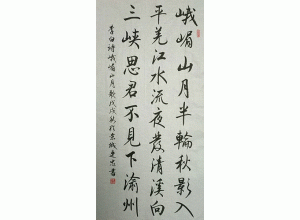 峨嵋山月半輪秋影入
平羌江水流夜發清溪向
三峽思君不見下渝州
李白詩峨嵋山月歌戊戌秋於京城